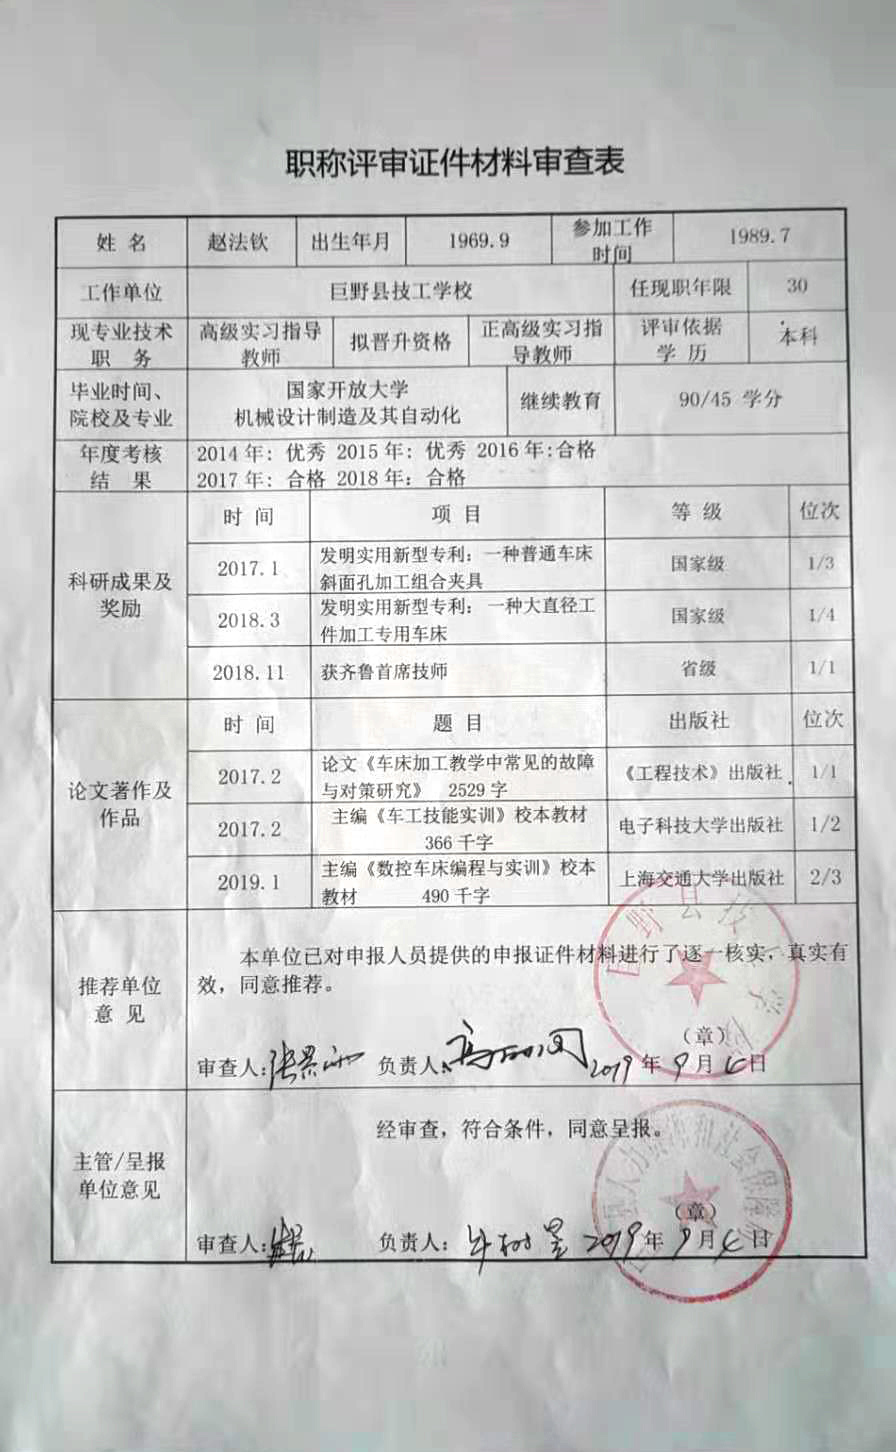 职称评审证件材料审查表
姓 名 赵法钦 出生年月 1969.9 参加工作时间 1989.7
工作单位 巨野县技工学校 任现职年限 30
现专业技术职 务 高级实习指导教师 拟晋升资格 正高级实习指导教师 评审依据学 历 本科
毕业时间、院校及专业 国家开放大学 机械设计制造及其自动化 继续教育 90/45 学分
年度考核结 果
2014 年: 优秀 2015 年: 优秀 2016 年:合格
2017 年: 合格 2018 年: 合格
科研成果及奖励
时 间 项 目 等 级 位次
2017.1 发明实用新型专利: 一种普通车床斜面孔加工组合夹具 国家级 1/3
2018.3 发明实用新型专利: 一种大直径工件加工专用车床 国家级 1/4
2018.11 获齐鲁首席技师 省级 1/1
论文著作及作品
时 间 题 目 出版社 位次
2017.2 论文《车床加工教学中常见的故障与对策研究》 2529 字 《工程技术》出版社 1/1
2017.2 主编《车工技能实训》校本教材 366 千字 电子科技大学出版社 1/2
2019.1 主编《数控车床编程与实训》校本教材 490 千字 上海交通大学出版社 2/3
推荐单位意 见
本单位已对申报人员提供的申报证件材料进行了逐一核实, 真实有
效, 同意推荐。
(章)
审查人: 负责人: 2019 年 9 月 4 日
主管/呈报单位意见
经审查, 符合条件, 同意呈报。
(章)
审查人: 负责人: 2019 年 9 月 4 日